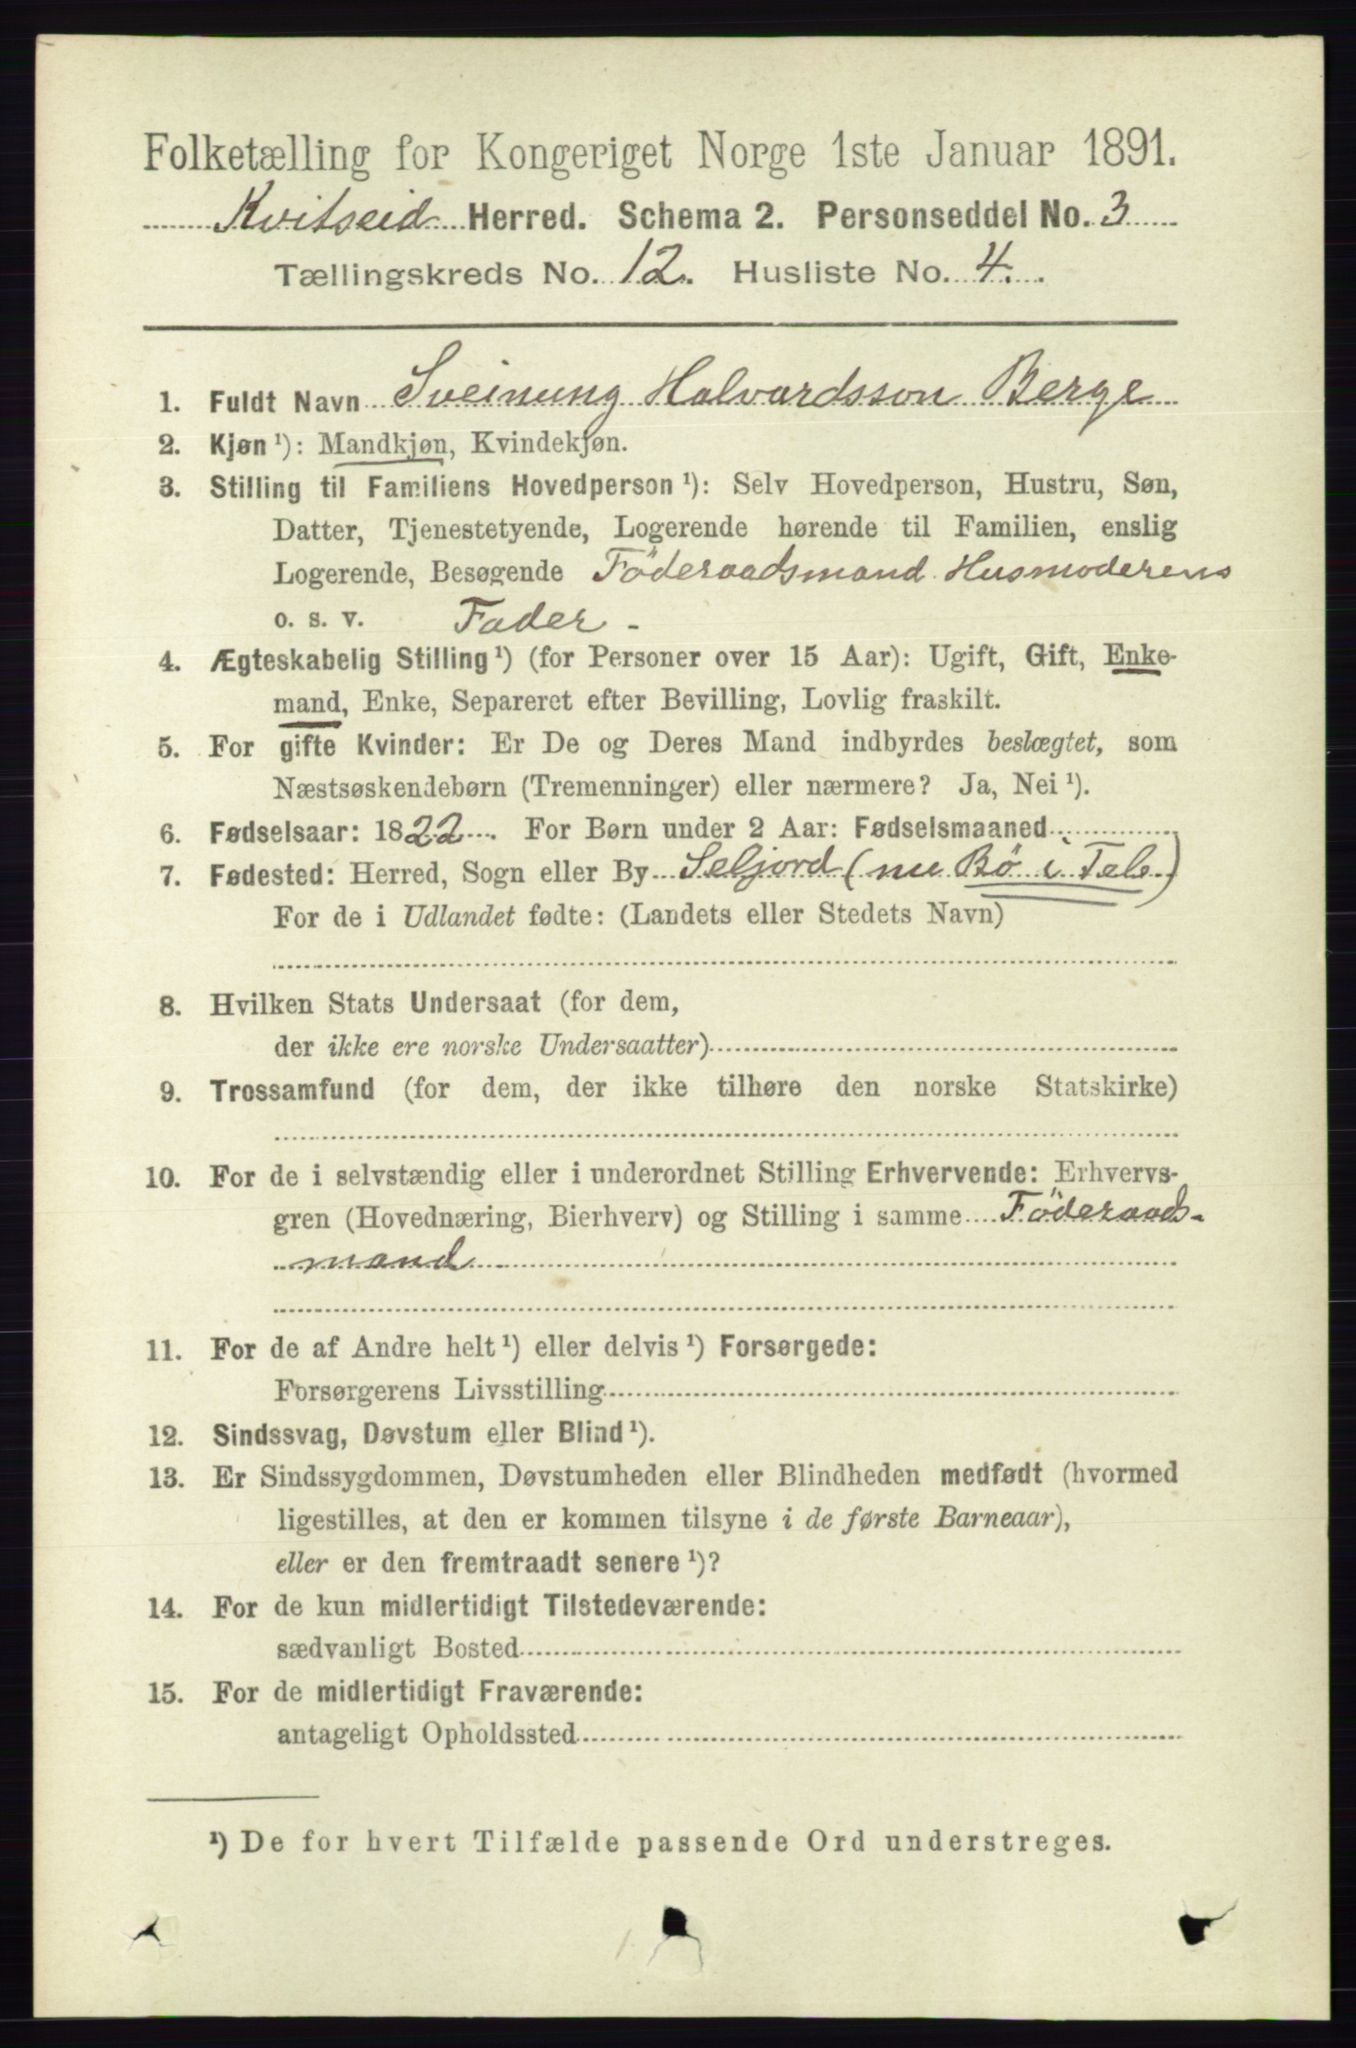 Folketælling for Kongeriget Norge 1ste Januar 1891.
Kvitseid Herred. Schema 2. Personseddel No. 3
Tællingskreds No. 12. Husliste No. 4.
1. Fuldt Navn Sveinung Halvardsson Berge
2. Kjøn ¹): Mandkjøn, Kvindekjøn.
3. Stilling til Familiens Hovedperson ¹): Selv Hovedperson, Hustru, Søn,
Datter, Tjenestetyende, Logerende hørende til Familien, enslig
Logerende, Besøgende Föderaadsmand Husmoderens
o. s. v. Fader -
4. Ægteskabelig Stilling ¹) (for Personer over 15 Aar): Ugift, Gift, Enke-
mand, Enke, Separeret efter Bevilling, Lovlig fraskilt.
5. For gifte Kvinder: Er De og Deres Mand indbyrdes beslægtet, som
Næstsøskendebørn (Tremenninger) eller nærmere? Ja, Nei ¹).
6. Fødselsaar: 1822. For Børn under 2 Aar: Fødselsmaaned
7. Fødested: Herred, Sogn eller By Seljord (nu Bö i Tele.)
For de i Udlandet fødte: (Landets eller Stedets Navn)
8. Hvilken Stats Undersaat (for dem,
der ikke ere norske Undersaatter)
9. Trossamfund (for dem, der ikke tilhøre den norske Statskirke)
10. For de i selvstændig eller i underordnet Stilling Erhvervende: Erhvervs-
gren (Hovednæring, Bierhverv) og Stilling i samme Föderaads-
mand
11. For de af Andre helt ¹) eller delvis ¹) Forsørgede:
Forsørgerens Livsstilling
12. Sindssvag, Døvstum eller Blind ¹).
13. Er Sindssygdommen, Døvstumheden eller Blindheden medfødt (hvormed
ligestilles, at den er kommen tilsyne i de første Barneaar),
eller er den fremtraadt senere ¹)?
14. For de kun midlertidigt Tilstedeværende:
sædvanligt Bosted
15. For de midlertidigt Fraværende:
antageligt Opholdssted
¹) De for hvert Tilfælde passende Ord understreges.